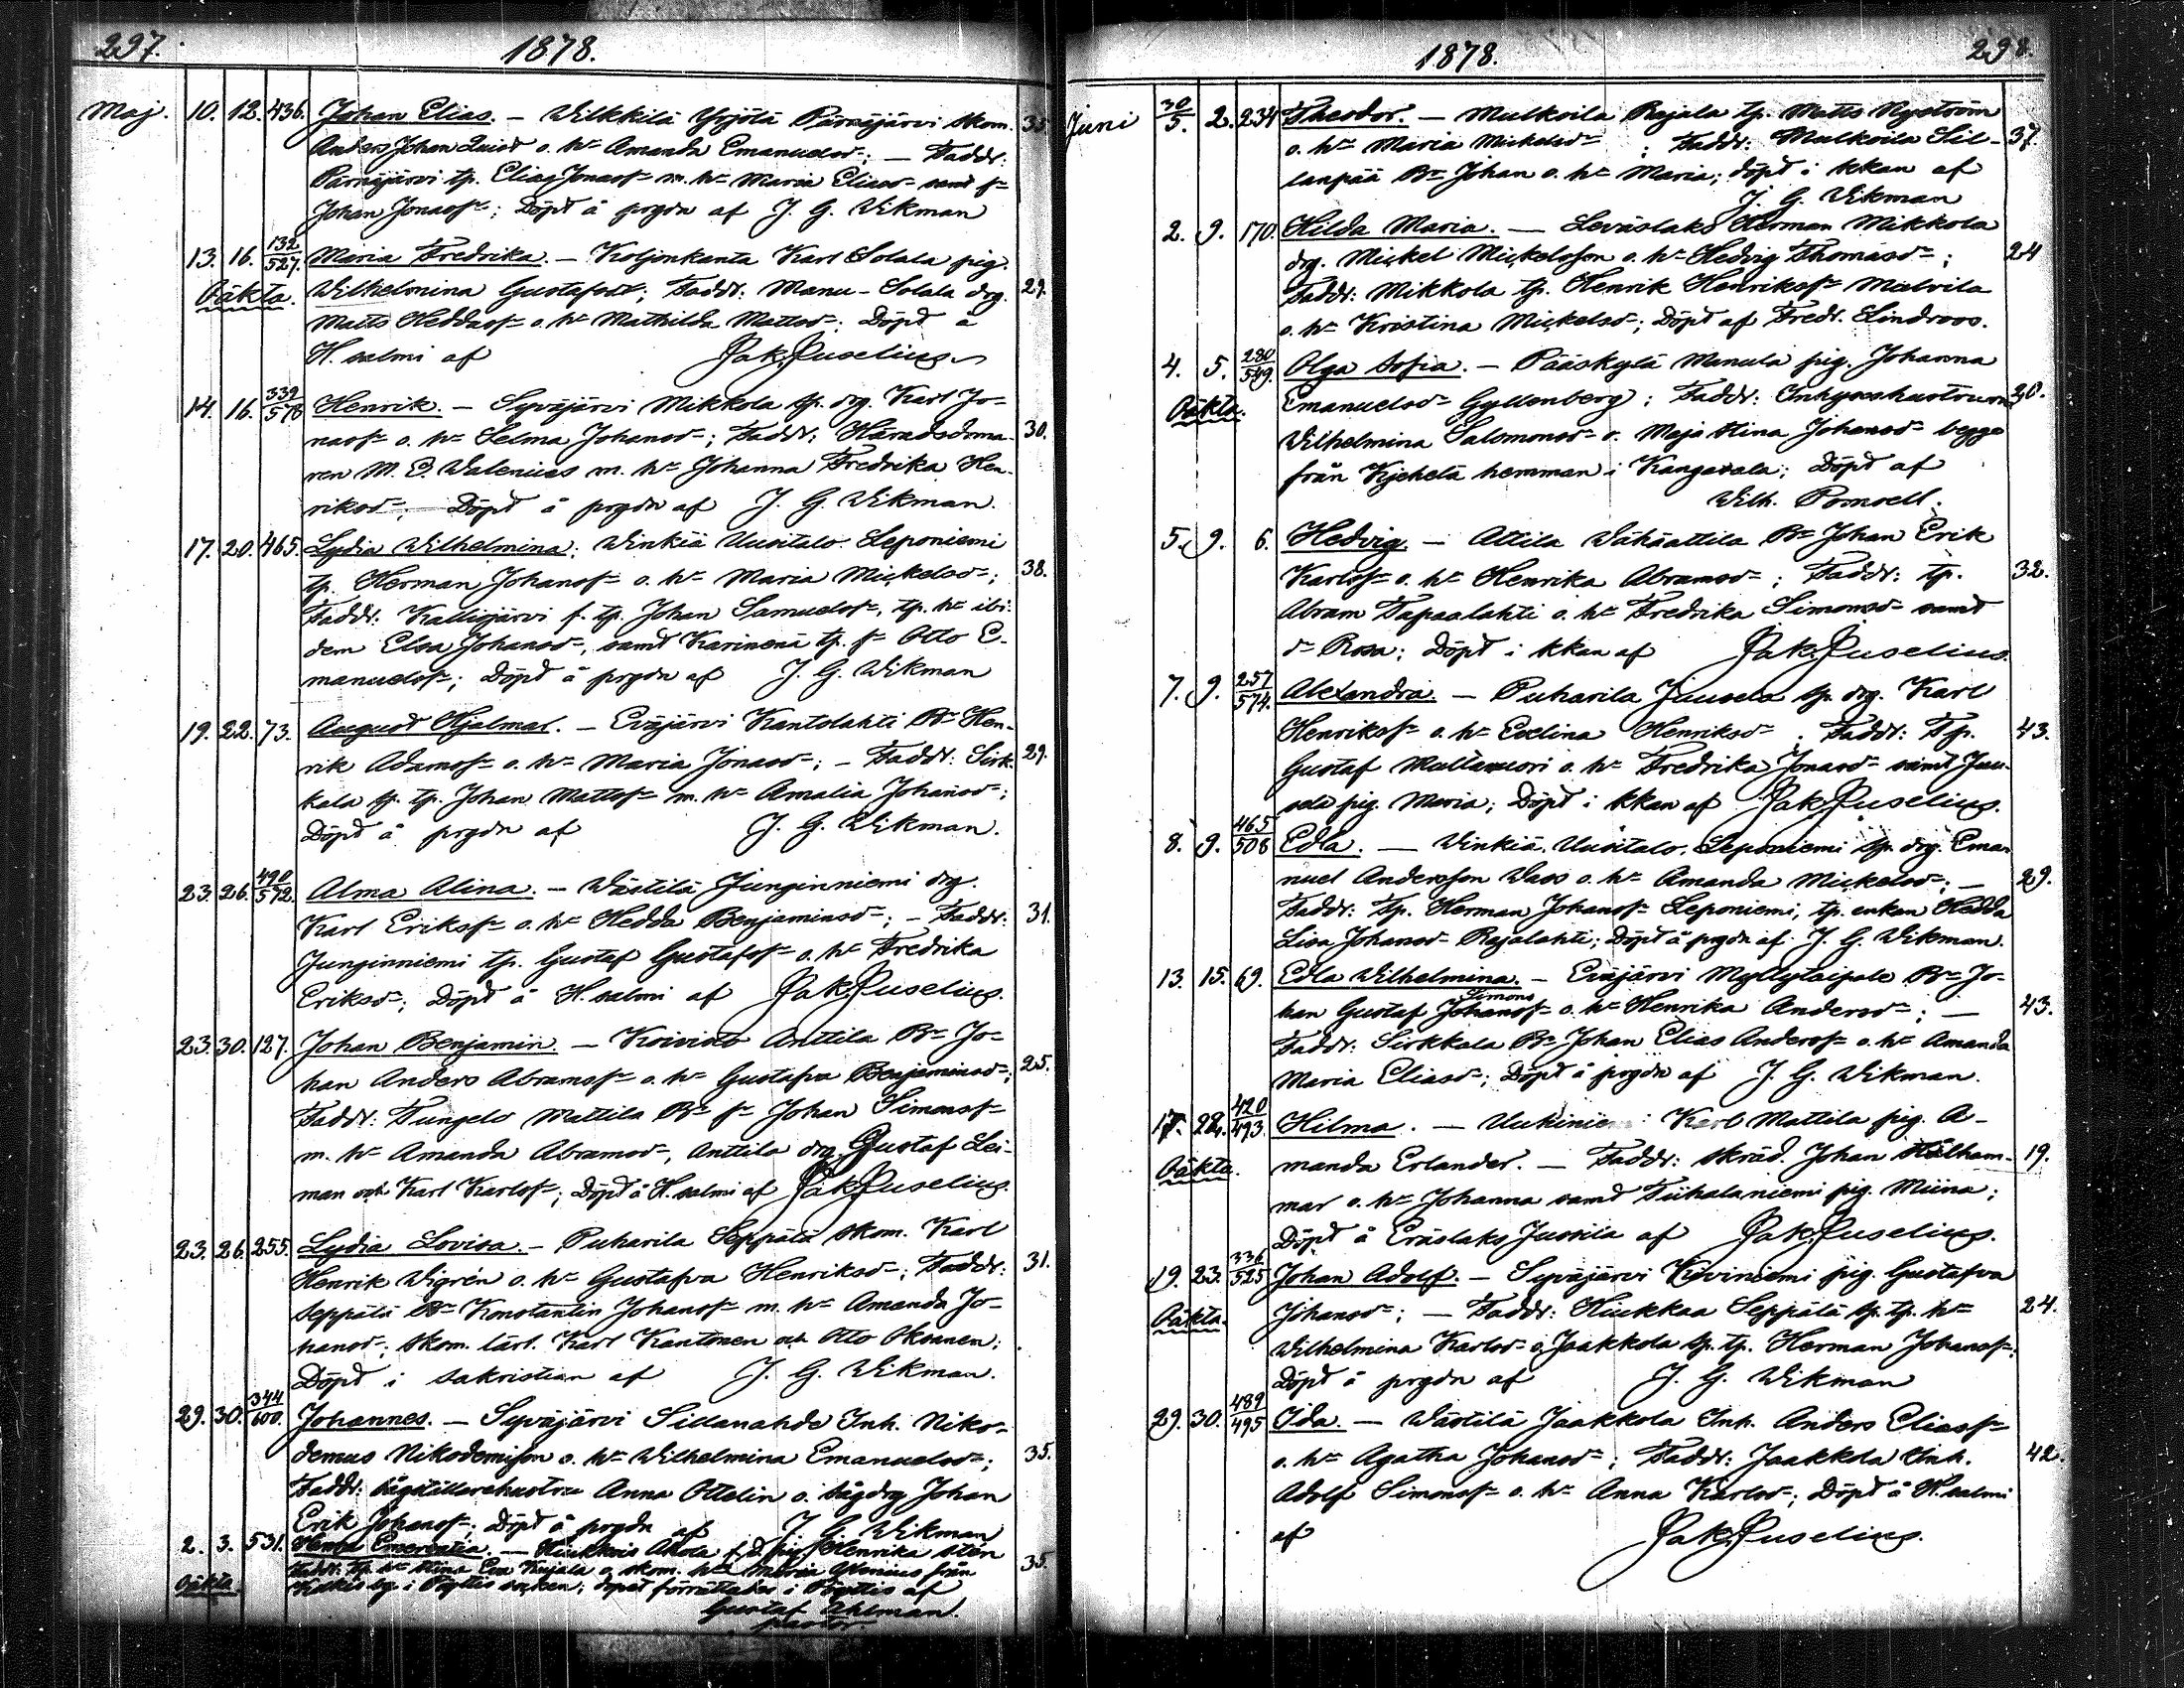 297. 1878.
Maj. 10. 12. 436. Johan Elias. — Wilkkilä Yrjölä Pärnäjärvi skom. 35.
Anders Johan Quist o. h= Amanda Emanuelsd=; — Faddr:
Pärnäjärvi tp. Elias Jonass= m. h= Maria Eliasd= samt s=
Johan Jonass=; Döpt å prgdn af J. G. Wikman
13. 16. 132/527. Maria Fredrika. — Koljonkanta Karl Solala pig.
Oäkta. Wilhelmina Gustafsdt; Faddr: Manu-Solala drg. 29.
Matts Heddass= o. h= Mathilda Mattsd=; Döpt å
H. salmi af Jak. Juselius
14. 16. 339/578 Henrik. — Syväjärvi Mikkola tp. drg. Karl Jo-
nass= o. h= Selma Johansd=; Faddr: Häradsdoma- 30.
ren M. E. Walenius m. h= Johanna Fredrika Hen-
riksd=; Döpt å prgdn af J. G. Wikman.
17. 20. 465. Lydia Wilhelmina. Winkiä Uusitalo Leponiemi
tp. Herman Johanss= o. h= Maria Mickelsd=; 38.
Faddr: Kalliojärvi f. tp. Johan Samuelss=, tp. h= ibi-
dem Elsa Johansd=, samt Karinenä tp. s= Otto E-
manuelss=; Döpt å prgdn af J. G. Wikman
19. 22. 73. August Hjalmar. — Eväjärvi Kantolahti B= Hen-
rik Adamss= o. h= Maria Jonasd=; — Faddr: Sirk- 29.
kala tp. tp. Johan Mattss= m. h= Amalia Johansd=;
Döpt å prgdn af J. G. Wikman.
23. 26. 490/572. Alma Alina. — Västilä Junginniemi drg.
Karl Erikss= o. h= Hedda Benjaminsd=; — Faddr: 31.
Junginniemi tp. Gustaf Gustafss= o. h= Fredrika
Eriksd=; Döpt å H. salmi af Jak. Juselius.
23. 30. 127. Johan Benjamin. — Koivisto Anttila B= Jo-
han Anders Abramss= o. h= Gustafva Benjaminsd=; 25.
Faddr: Tungelo Mattila B= s= Johan Simonss=
m. h= Amanda Abramsd=, Anttila drg. Gustaf Lei-
man och Karl Karlss=; Döpt å H. salmi af Jak. Juselius.
23. 26. 255. Lydia Lovisa. — Puharila Seppälä skom. Karl
Henrik Wigrén o. h= Gustafva Henriksd=; Faddr: 31.
Seppälä B= Konstantin Johanss= m. h= Amanda Jo-
hansd=; skom. lärl. Karl Kantonen och Otto Oksanen;
Döpt i sakristian af J. G. Wikman.
29. 30. 344/600. Johannes. — Syväjärvi Sillanahde Inh. Niko-
demus Nikodemisson o. h= Wilhelmina Emanuelsd=; 35.
Faddr: sågställarehustru Anna Ottelin o. sågdrg Johan
Erik Johanss=; Döpt å prgdn af J. G. Wikman
2. 3. 531. Emerentia. — Ahola Henrika Sten
Oäkta. Faddr: tp. h= Stina Eva Kujala o. skom. h= Maria från 35.
i Pöytis socken; dopet förrättades i Pöytis af
Gustaf Uhlman.
pastor.
1878. 298.
Juni 30/5. 2. 234 Theodor. — Mulkoila Rajala tp. Matts Nyström
o. h= Maria Mickelsd=; Faddr: Mulkoila Sil- 37.
lanpää B= Johan o. h= Maria; döpt i kkan af
J. G. Wikman
2. 9. 170. Hilda Maria. — Leväslaks Herman Mikkola
drg. Mickel Mickelsson o. h= Hedvig Thomasd=; 24
Faddr: Mikkola tp. Henrik Henrikss= Matvila
o. h= Kristina Mickelsd=; Döpt af Fredr. Lindroos.
4. 5. 280/549. Olga Sofia. — Pääskylä Manula pig. Johanna
Oäkta. Emanuelsd= Gyllenberg; Faddr: Inhyseshustrurna 20.
Wilhelmina Salomonsd= o. Maja Stina Johansd= begge
från Kyehelä hemman i Kangasala; Döpt af
Wilh. Pomoell.
5. 9. 6. Hedvig. — Attila Wähäattila B= Johan Erik
Karlss= o. h= Henrika Abramsd=; Faddr: tp. 32.
Abram Tapaslahti o. h= Fredrika Simonsd= samt
d= Rosa; Döpt i kkan af Jak. Juselius.
7. 9. 257/574. Alexandra. — Puharila Juusela tp. drg. Karl
Henrikss= o. h= Evelina Henriksd=. Faddr: Tp. 43.
Gustaf Multavuori o. h= Fredrika Jonasd= samt Juu-
sela pig. Maria; Döpt i kkan af Jak. Juselius.
8. 9. 465/508 Edla. — Winkiä Uusitalo Leponiemi tp. drg. Ema-
nuel Andersson Waos o. h= Amanda Mickelsd=; — 29.
Faddr: tp. Herman Johanss= Leponiemi, tp. enkan Hedda
Lisa Johansd= Rajalahti; Döpt å prgdn af J. G. Wikman.
13. 15. 69. Edla Wilhelmina. — Eväjärvi Myllytaipale B= Jo-
Simons
han Gustaf Johanss= o. h= Henrika Andersd=; — 43.
Faddr: Sirkkala B= Johan Elias Anderss= o. h= Amanda
Maria Eliasd=; Döpt å prgdn af J. G. Wikman.
17. 22. 420/493. Hilma. — Uukiniemi Karl Mattila pig. A-
Oäkta. manda Erlander. — Faddr: skräd. Johan Hälham- 19.
mar o. h= Johanna samt Tiihalaniemi pig. Miina;
Döpt å Eräslaks Jussila af Jak. Juselius.
19. 23. 336/525 Johan Adolf. — Syväjärvi Kiviniemi pig. Gustafva
Oäkta. Johansd=; — Faddr: Hiukkaa Seppälä tp. tp. h= 24.
Wilhelmina Karlsd= o. Jaakkola tp. tp. Herman Johanss=;
Döpt å prgdn af J. G. Wikman
29. 30. 489/495 Ida. — Västilä Jaakkola Inh. Anders Eliass=
o. h= Agatha Johansd=; Faddr: Jaakkola Inh. 42.
Adolf Simonss= o. h= Anna Karlsd=; Döpt å H. salmi
af Jak. Juselius.